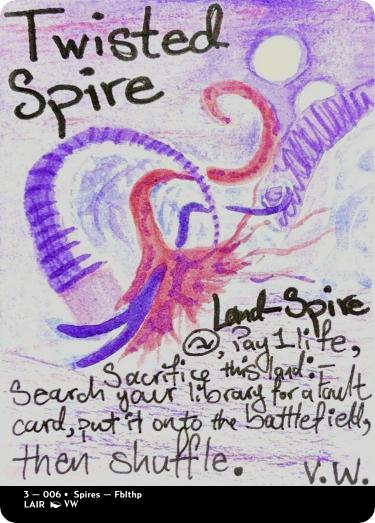 Twisted
Spire
Land-Spire
, Pay 1 life,
Sacrifice this land: –
Search your library for a Fault
card, put it onto the battlefield,
then shuffle.
V.W.
3 — 006 • Spires — Fblthp
LAIR VW